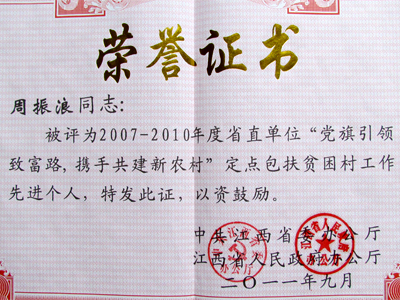 荣誉证书
周振浪同志:
被评为2007-2010年度省直单位“党旗引领
致富路,携手共建新农村”定点包扶贫困村工作
先进个人,特发此证,以资鼓励。
中共江西省委办公厅
江西省人民政府办公厅
二〇一一年九月